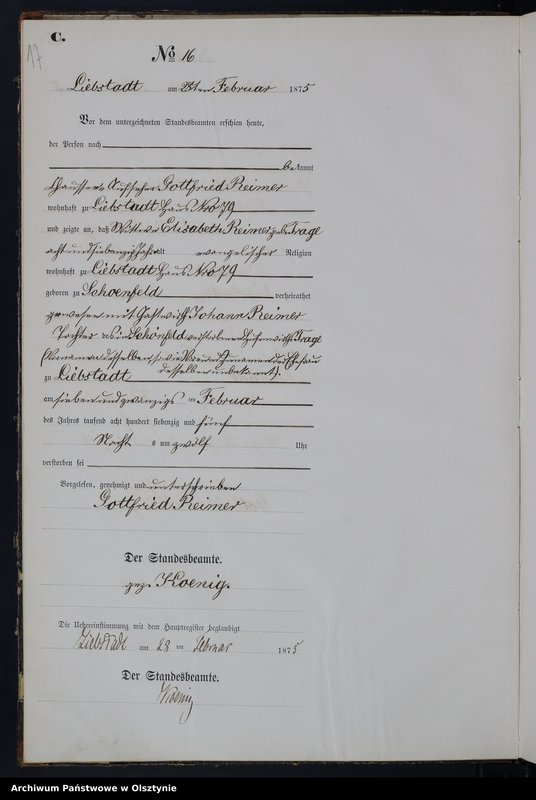 C.
17
No 16
Liebstadt am 28ten Februar 1875
Vor dem unterzeichneten Standesbeamten erschien heute,
der Person nach
bekannt
Chaussee-Aufseher Gottfried Reimer
wohnhaft zu Liebstadt Haus No 79
und zeigte an, daß Wittwe Elisabeth Reimer geb. Trage
acht und siebenzig Jahre alt evangelischer Religion
wohnhaft zu Liebstadt Haus No 79
geboren zu Schoenfeld verheirathet
gewesen mit Gastwirth Johann Reimer
Tochter des in Schönfeld verstorbenen Hufenwirth Trage
(Vornamen desselben, sowie Vor und Zunamen der Ehefrau
desselben unbekannt).
zu Liebstadt
am sieben und zwanzigs ten Februar
des Jahres tausend acht hundert siebenzig und fünf
Nachts um zwölf Uhr
verstorben sei
Vorgelesen, genehmigt und unterschrieben
Gottfried Reimer
Der Standesbeamte.
gez. Koenig.
Die Uebereinstimmung mit dem Hauptregister beglaubigt
Liebstadt am 28 ten Februar 1875
Der Standesbeamte.
Koenig
Archiwum Państwowe w Olsztynie